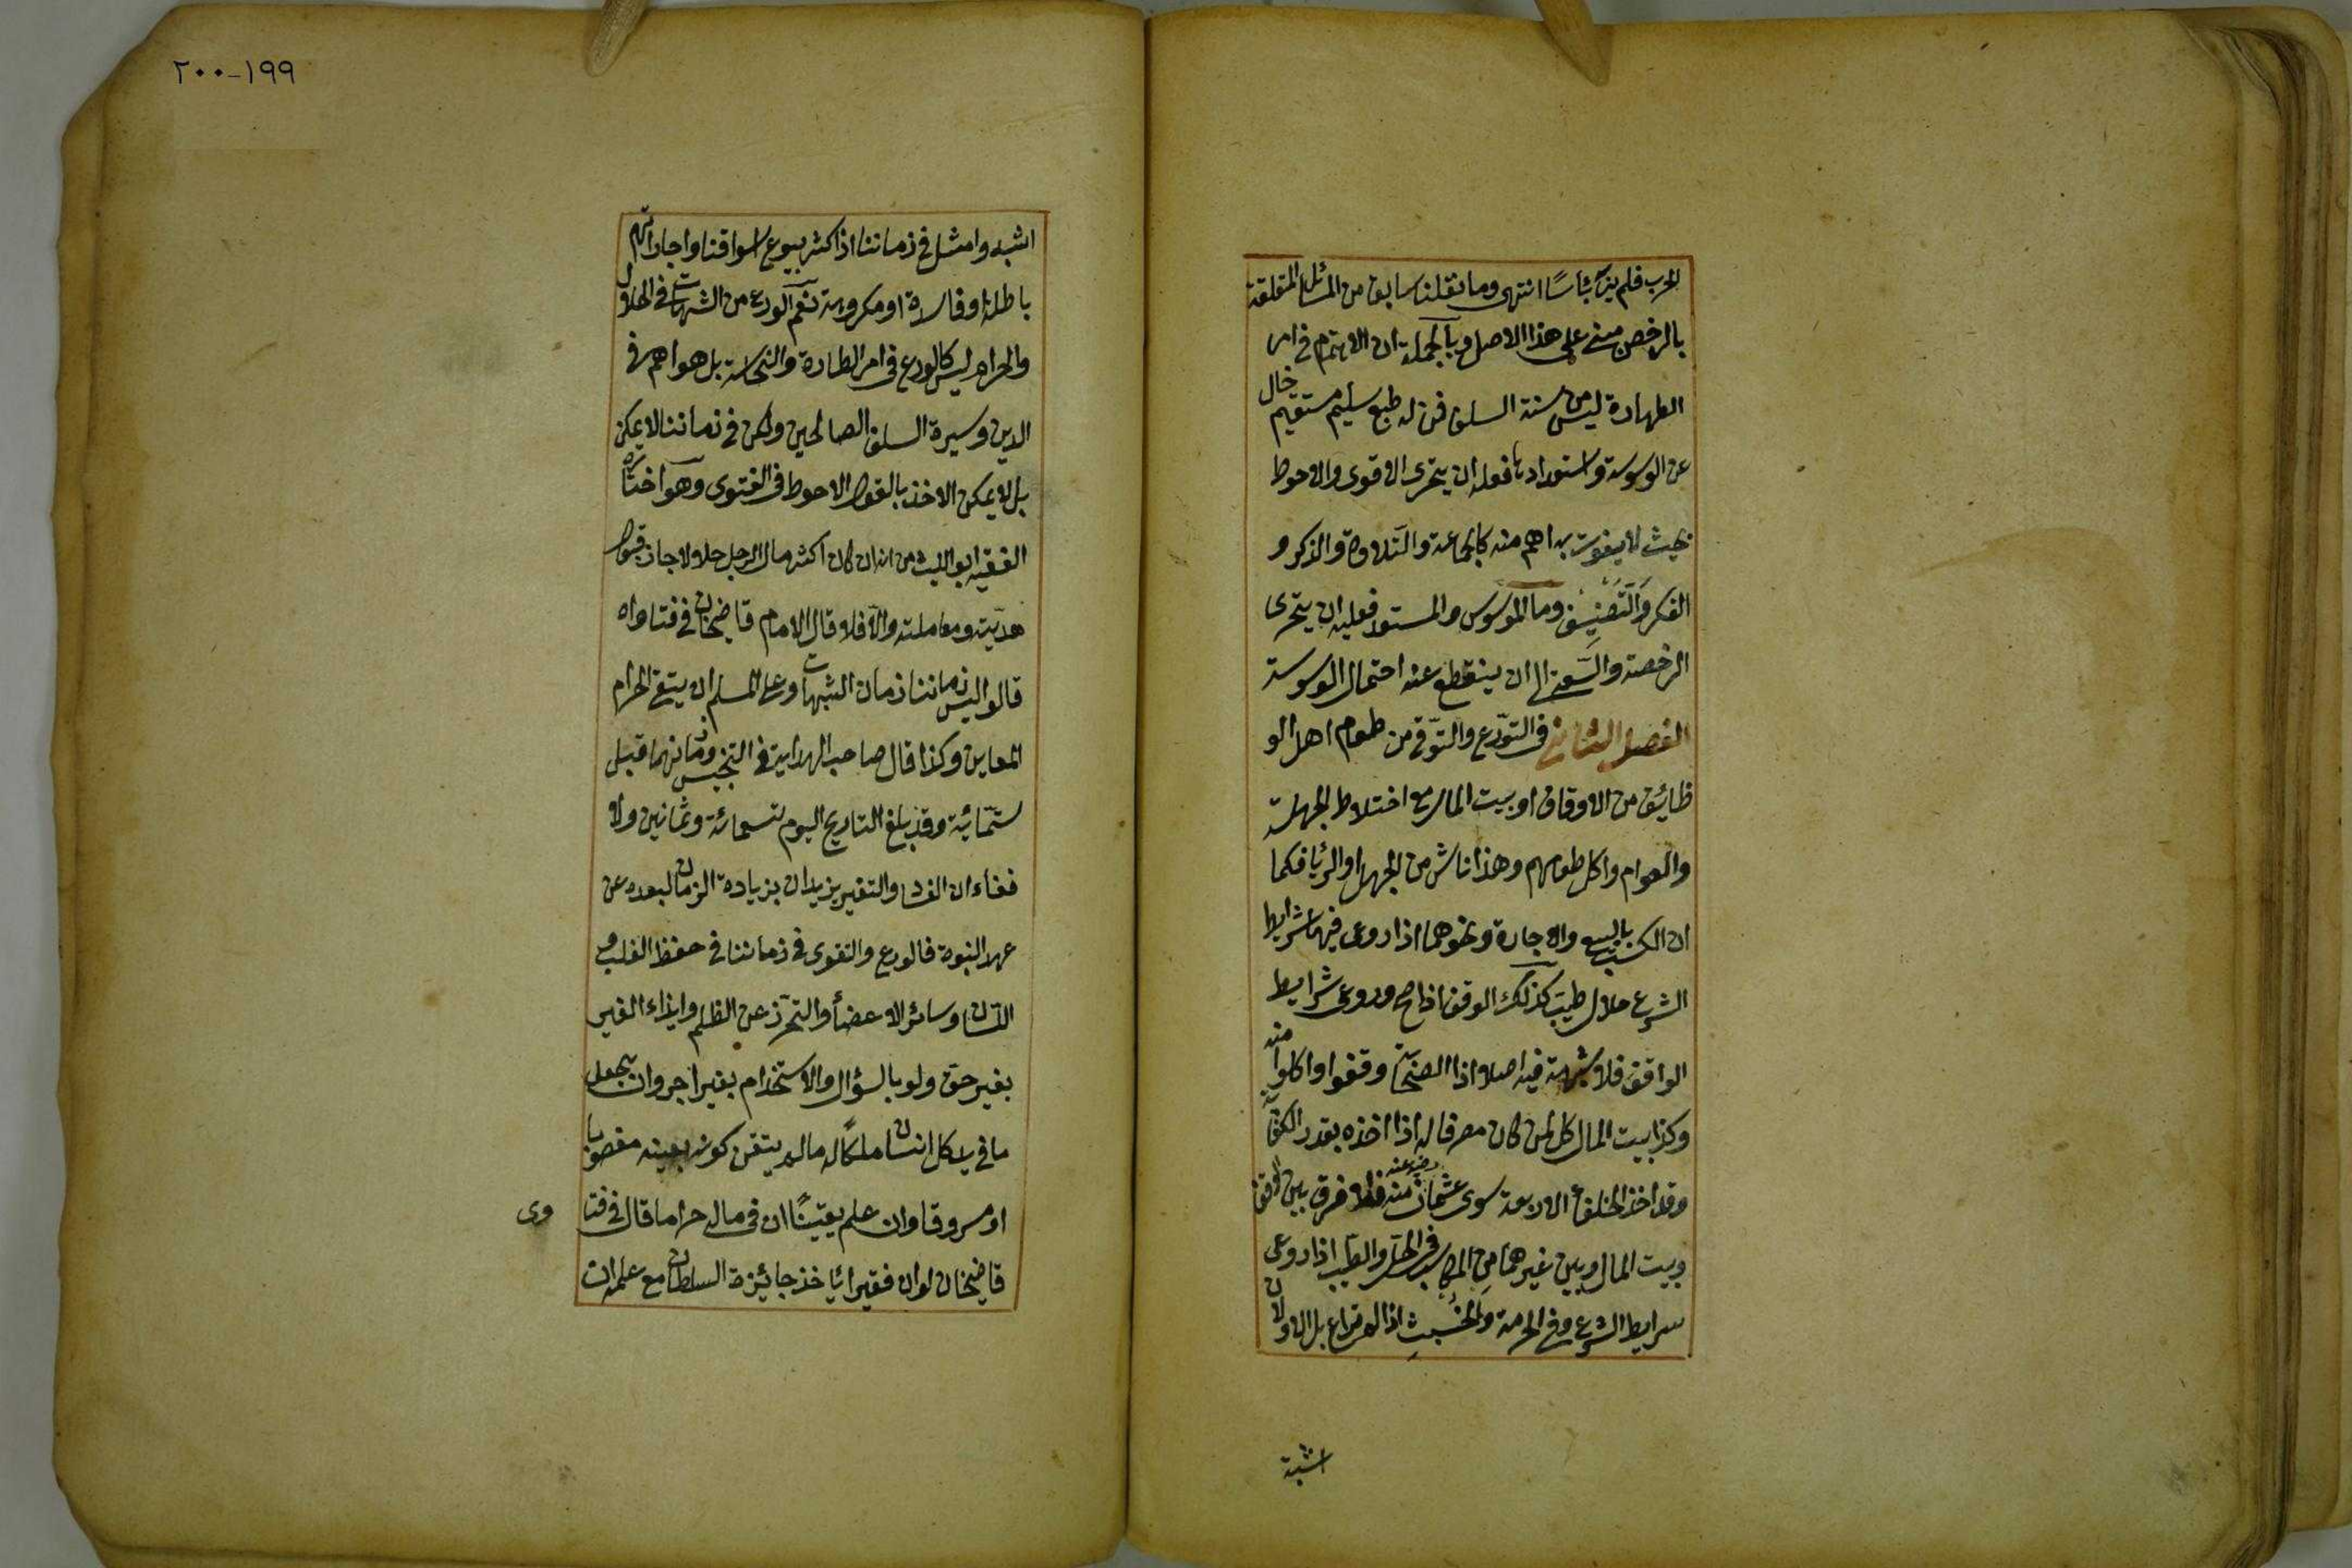 الحرب فلم ير بها بأسًا انتهى وما نقلنا سابق من المسائل المتعلقة
بالرخص مبنى على هذا الاصل وبالجملة ان الاهتمام فى امر
الطهارة ليس من سنة السلف فمن له طبع سليم مستقيم خال
عن الوسوسة واستعدادها فعله ان يتحرى الاقوى والاحوط
بحيث لا يفوت به اهم منه كالجماعة والتلاوة والذكر و
الفكر والتصنيف وما الموسوس والمستعد فعليه ان يتحرى
الرخصة والسعة الى ان ينقطع عنه احتمال الوسوسة
الفصل الثانى فى التورع والتوقى من طعام اهل الو
ظائف من الاوقاف او بيت المال مع اختلاط الجهلة
والعوام واكل طعامهم وهذا ناش من الجهل او الريا فكما
ان الكسب بالبيع والاجارة ونحوهما اذا روعى فيها شرايط
الشرع حلال طيب كذلك الوقف اذا صح وروعى شرايط
الواقف فلا شبهة فيه اصلا اذا الصحابة وقفوا واكلوا منه
وكذا بيت المال كل لمن كان مصرفا له اذا اخذه بقدر الكفاية
وقد اخذ الخلفاء الاربعة سوى عثمان رضى عنه منه فلا فرق بين الوقف
وبيت المال وبين غيرهما من المكاسب فى الحل والطيب اذا روعى
سرايط الشرع وفى الحرمة والخبث اذا لم تراع بل الاولان
اشبة
١٩٩-٢٠٠
اشبه وامثل فى زماننا اذ اكثر بيوع اسواقنا واجاراتهم
باطلة او فاسدة او مكروهة نعم الورع من الشبهات فى الحلال
والحرام ليس كالورع فى امر الطهارة والنجاسة بل هو اهم فى
الدين وسيرة السلف الصالحين ولكن فى زماننا لا يمكن
بل لا يمكن الاخذ بالقول الاحوط فى الفتوى وهو اختاره
الفقيه ابو الليث من انه ان كان اكثر مال الرجل حلالا جاز قبول
هديته ومعاملته والا فلا قال الامام قاضيخان فى فتاواه
قالوا ليس زماننا زمان الشبهات وعلى المسلم ان يتقى الحرام
المعاين وكذا قال صاحب الهداية فى التجنيس وزمانهما قبل
ستمائية وقد بلغ التاريخ اليوم تسعمائة وثمانين ولا
خفاء ان الفساد والتغير يزيدان بزيادة الزمان لبعده عن
عهد النبوة فالورع والتقوى فى زماننا فى حفظ القلب و
اللسان وسائر الاعضأ والتحرز عن الظلم وايذاء الغير
بغير حق ولو بالسؤال والاستخدام بغير اجر وان يجعل
ما فى يد كل انسان ملكًا له مالم يتقن كونه بعينه مغصوبا
او مسروقا وان علم يقينًا ان فى ماله حراما قال فى فتا
وى
قاضيخان لو ان فقيرا ياخذ جائزة السلطان مع علمه ان